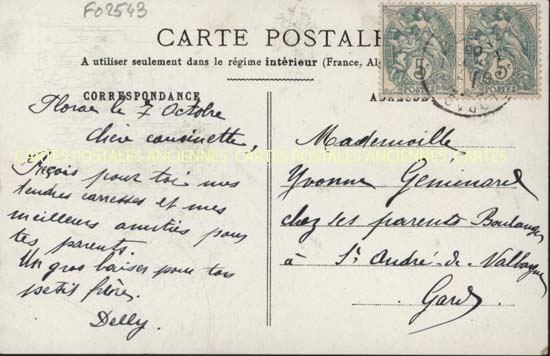 F02543
CARTE POSTALE
A utiliser seulement dans le régime intérieur (France, Alg
CORRESPONDANCE
Florac le 7 Octobre
Chère cousinette,
Reçois pour toi mes
tendres caresses et mes
meilleurs amitiés pour
tes parents.
Un gros baiser pour ton
petit frère.
Delly.
CARTES POSTALES ANCIENNES CARTES POSTALES ANCIENNES
ADRESSE
Mademoiselle
Yvonne
chez ses parents Boulanger
à St André-de-Valborgne
Gard
5c 5c
POSTES POSTES